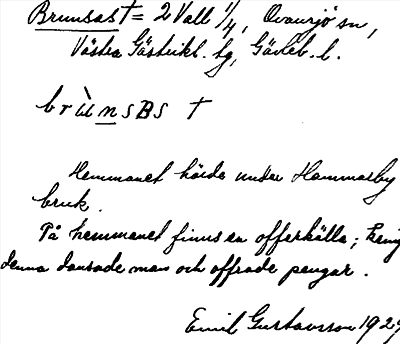 Brunsas † = 2 Vall 1/4, Ovansjö sn,
Västra Gästrikl. tg, Gävleb. l.
brùnsBs †
Hemmanet hörde under Hammarby
bruk.
På hemmanet finns en offerkälla; kring
denna dansade man och offrade pengar.
Emil Gustavsson 1927